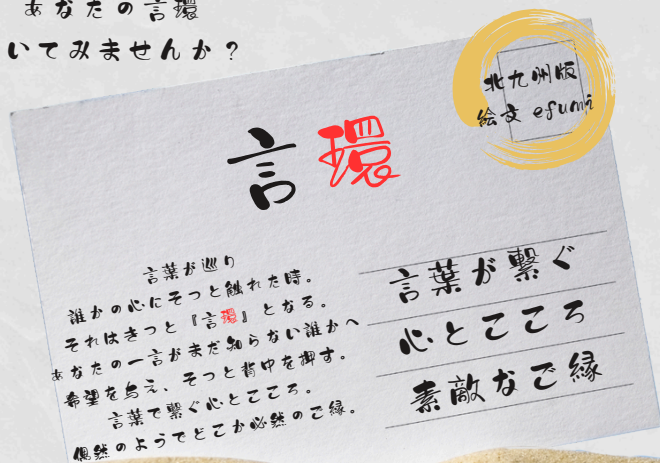 あなたの言環
いてみませんか？
北九州版
絵文 efumi
言環
言葉が巡り
誰かの心にそっと触れた時。
それはきっと『言環』となる。
あなたの一言がまだ知らない誰かへ
希望を与え、そっと背中を押す。
言葉で繋ぐ心とこころ。
偶然のようでどこか必然のご縁。
言葉が繋ぐ
心とこころ
素敵なご縁